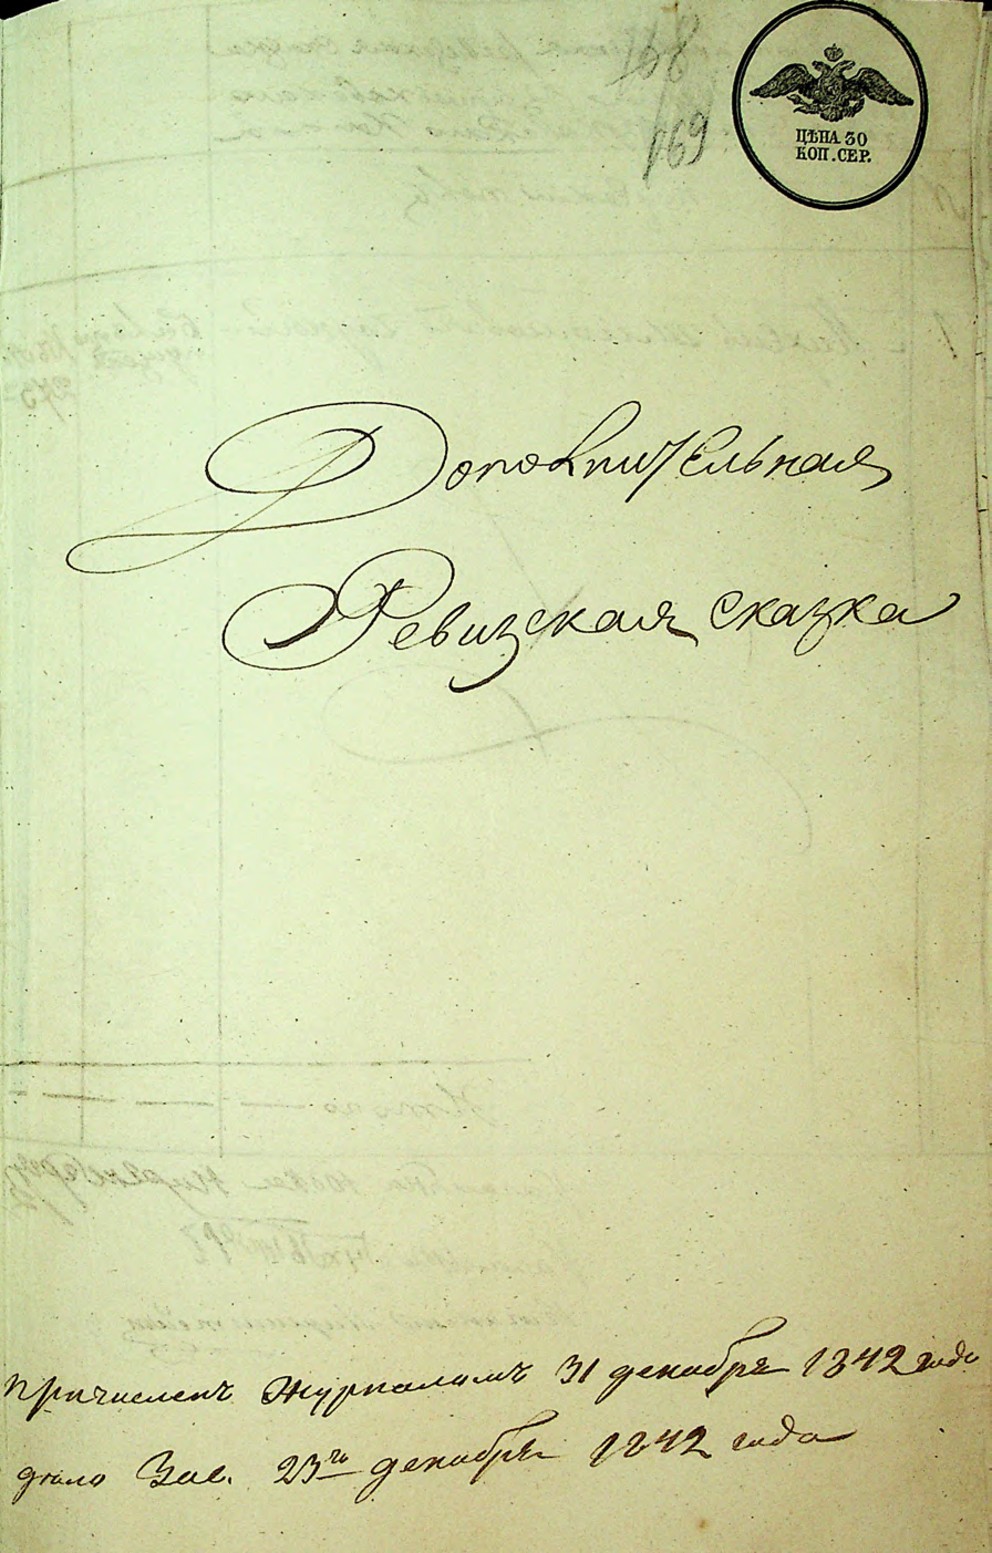 168
169
ЦѢНА 30
КОП. СЕР.
Дополнительная
Ревизская сказка
Причисленъ Журналомъ 31 декабря 1842 года
дѣло Зас. 23го декабря 1842 года